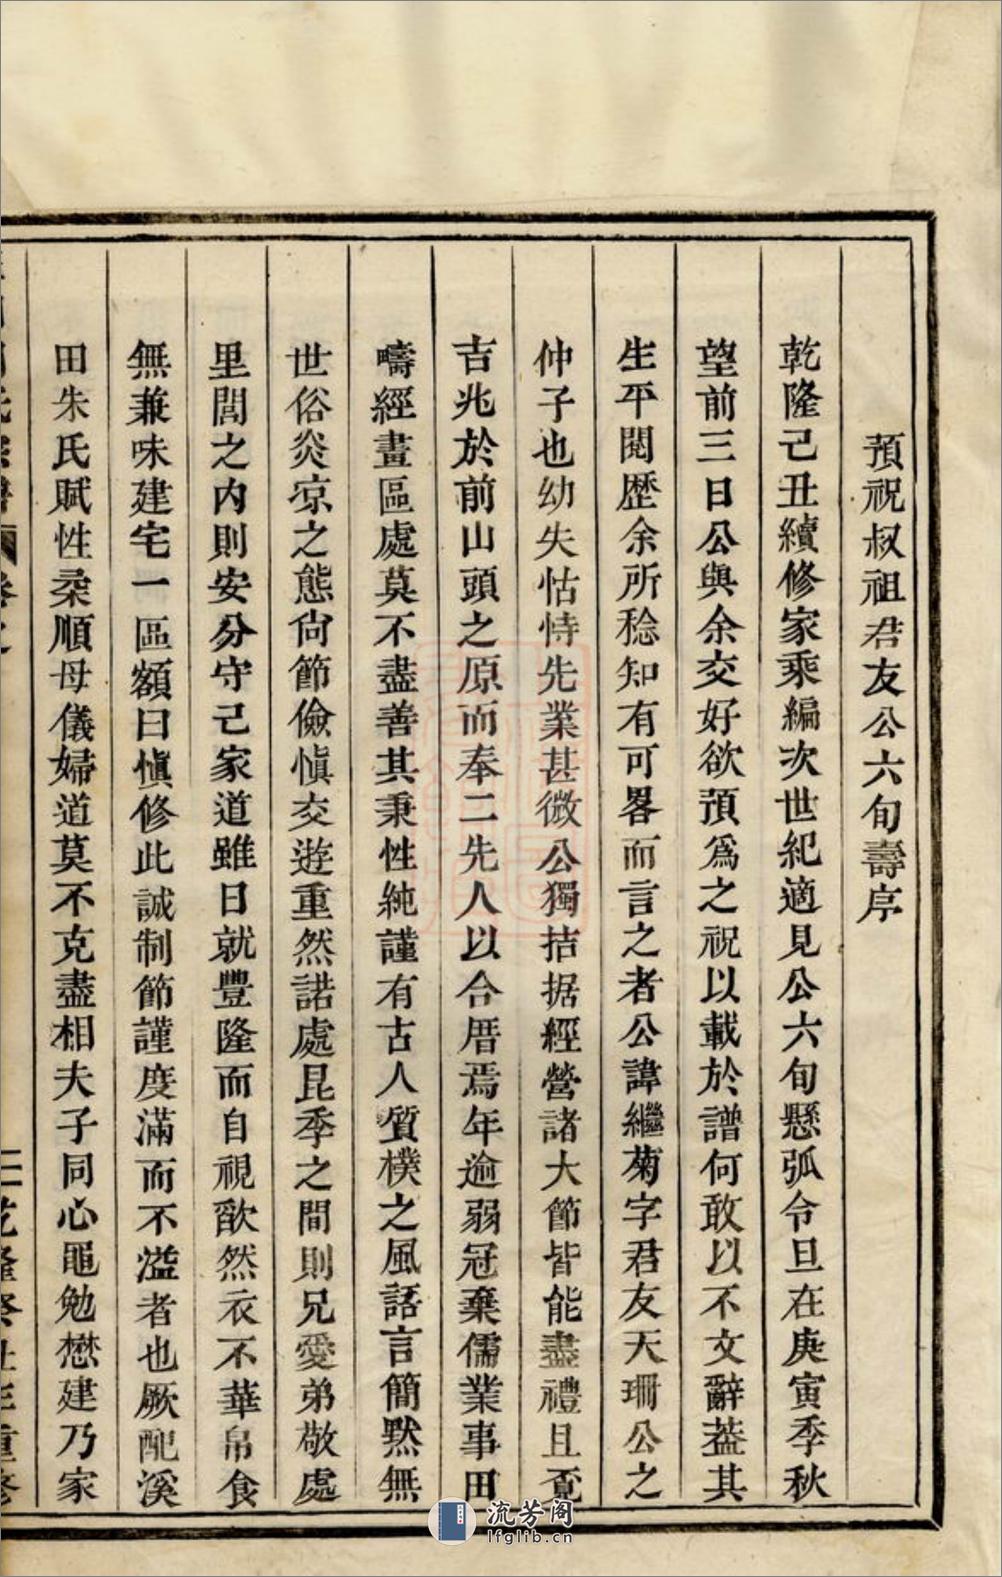 預祝叔祖君友公六旬壽序
乾隆己丑續修家乘編次世紀適見公六旬懸弧令旦在庚寅季秋
望前三日公與余交好欲預爲之祝以載於譜何敢以不文辭葢其
生平閱歷余所稔知有可畧而言之者公諱繼菊字君友天珊公之
仲子也幼失怙恃先業甚微公獨拮据經營諸大節皆能盡禮且覔
吉兆於前山頭之原而奉二先人以合厝焉年逾弱冠棄儒業事田
疇經畫區處莫不盡善其秉性純謹有古人質樸之風話言簡默無
世俗炎凉之態尙節儉愼交遊重然諾處昆季之間則兄愛弟敬處
里閭之內則安分守己家道雖日就豐隆而自視歉然衣不華帛食
無兼味建宅一區額曰愼修此誠制節謹度滿而不溢者也厥配溪
田朱氏賦性柔順母儀婦道莫不克盡相夫子同心黽勉懋建乃家
乾隆
重修
流芳阁
lfglib.cn